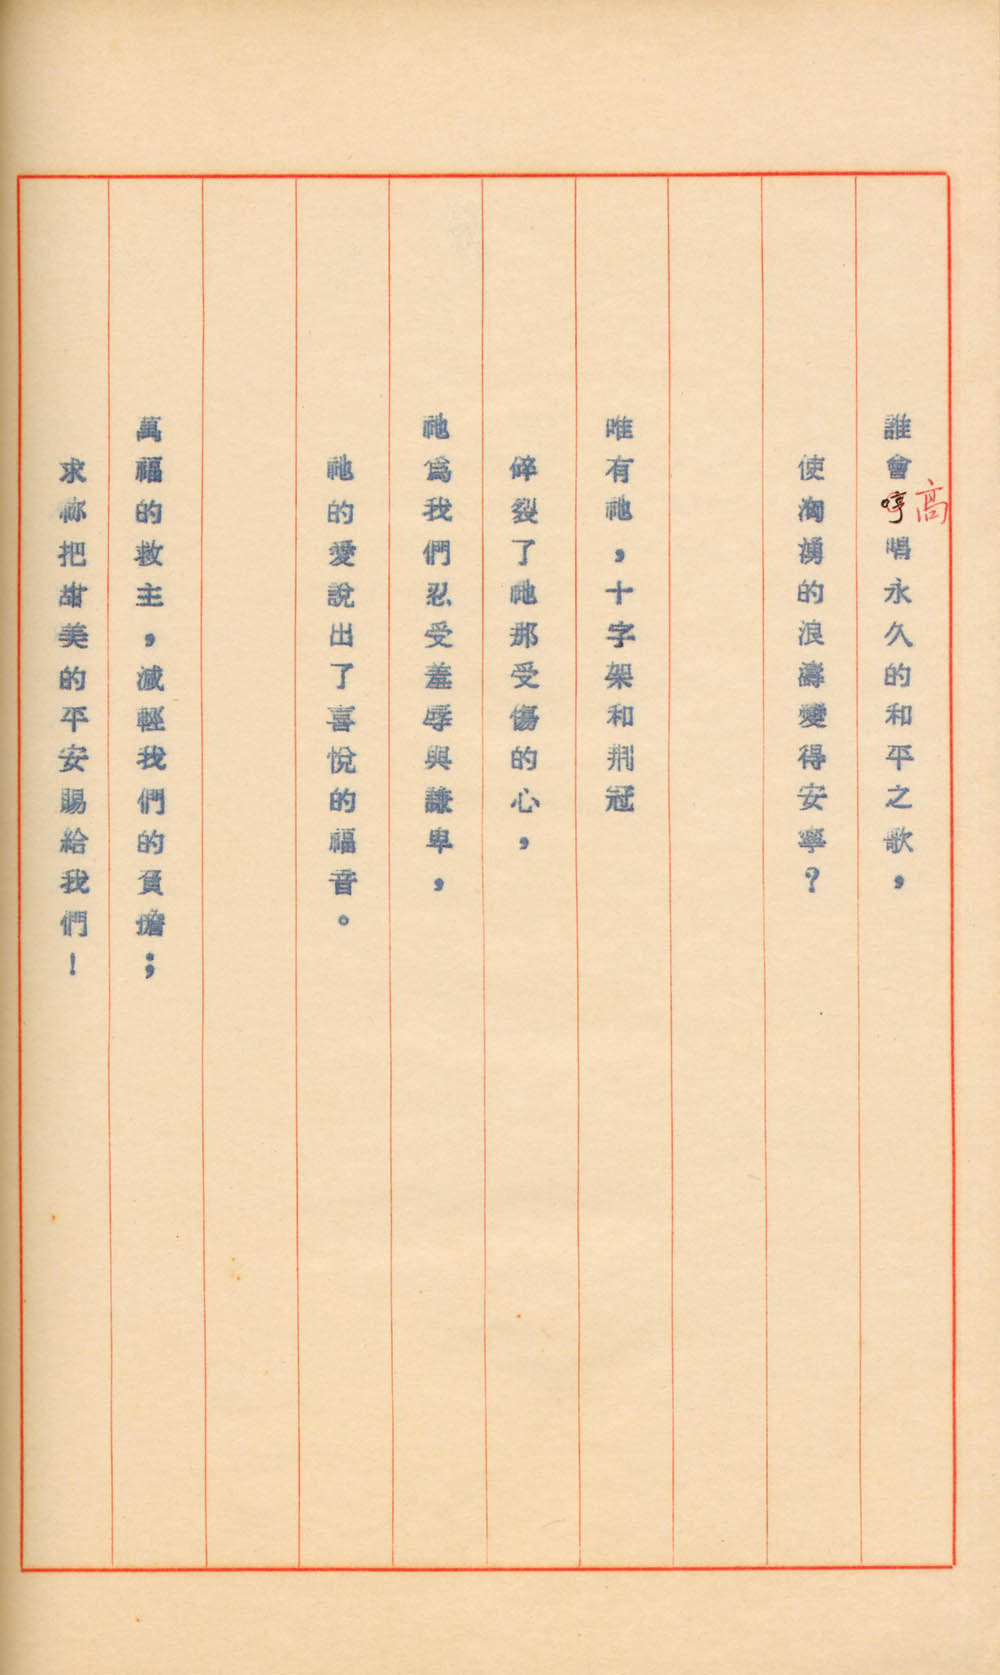 誰會哼唱永久的和平之歌，
高
使洶湧的浪濤變得安寧？
唯有祂，十字架和荆冠
碎裂了祂那受傷的心，
祂爲我們忍受羞辱與謙卑，
祂的愛說出了喜悅的福音。
萬福的救主，減輕我們的負擔；
求祢把甜美的平安賜給我們！